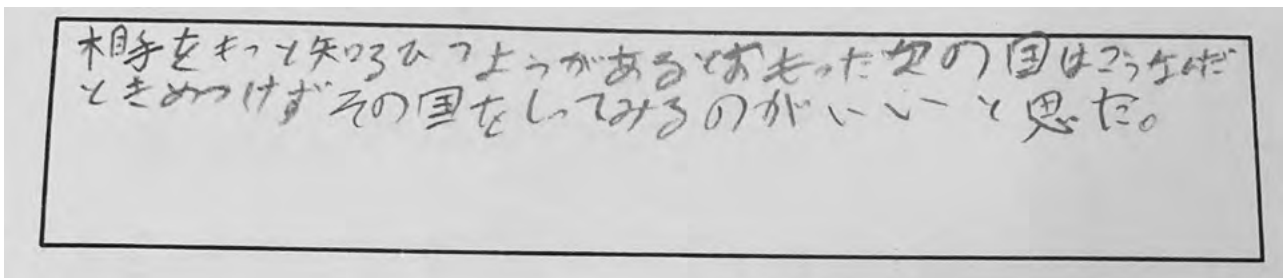 相手をもっと知るひつようがあるとおもった の国はこうなんだ
ときめつけずその国をしってみるのがいいと思た。